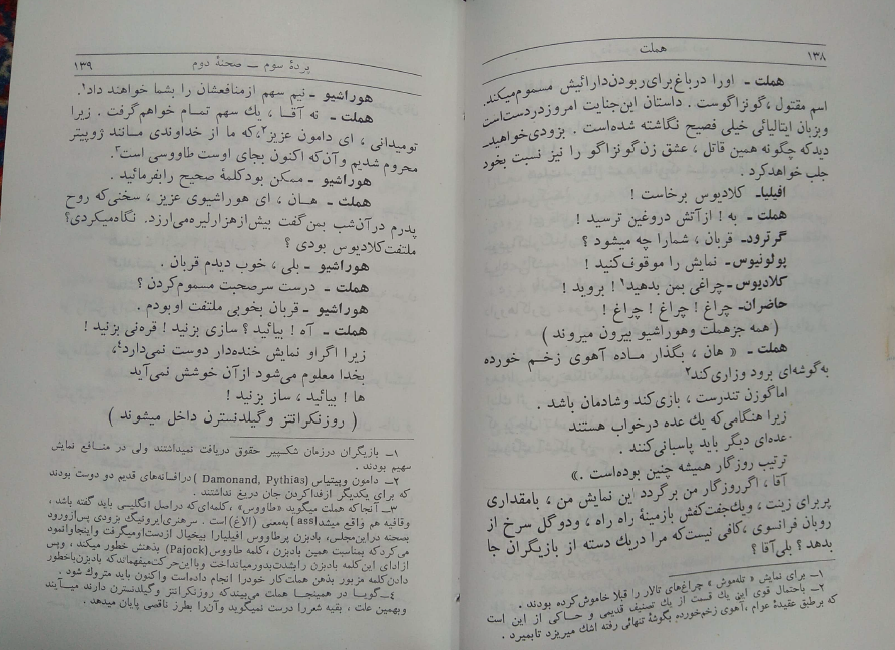 ۱۳۸
هملت
هملت ـ اورا درباغ برای ربودن دارائیش مسموم میکند.
اسم مقتول ، گونزاگوست . داستان این جنایت امروز دردست است
وبزبان ایتالیائی خیلی فصیح نگاشته شده است . بزودی خواهید ـ
دید که چگونه همین قاتل ، عشق زن گونزاگو را نیز نسبت بخود
جلب خواهد کرد .
افیلیا ـ کلادیوس برخاست !
هملت ـ به ! از آتش دروغین ترسید !
گرترود ـ قربان ، شمارا چه میشود ؟
پولونیوس ـ نمایش را موقوف کنید !
کلادیوس ـ چراغی بمن بدهید۱ ! بروید !
حاضران ـ چراغ ! چراغ ! چراغ !
( همه جز هملت و هوراشیو بیرون میروند )
هملت ـ « هان ، بگذار ماده آهوی زخم خورده
به گوشه‌ای برود وزاری کند۲
اما گوزن تندرست ، بازی کند وشادمان باشد .
زیرا هنگامی که یك عده درخواب هستند
عده‌ای دیگر باید پاسبانی کنند .
ترتیب روزگار همیشه چنین بوده است . »
آقا ، اگر روزگار من برگردد این نمایش من ، بامقداری
پر برای زینت ، ویك جفت کفش بازمینهٔ راه راه ، و دو گل سرخ از
روبان فرانسوی ، کافی نیست که مرا دریك دسته از بازیگران جا
بدهد ؟ بلی آقا ؟
۱ـ برای نمایش « تله‌موش » چراغهای تالار را قبلا خاموش کرده بودند .
۲ـ باحتمال قوی این یك قسمت از یك تصنیف قدیمی و حاکی از این است
که برطبق عقیدهٔ عوام ، آهوی زخم خورده بگوشهٔ تنهائی رفته اشك میریزد تا بمیرد .
پردهٔ سوم ـ صحنهٔ دوم
۱۳۹
هوراشیو ـ نیم سهم ازمنافعشان را بشما خواهند داد۱.
هملت ـ نه آقا ، یك سهم تمام خواهم گرفت . زیرا
تومیدانی ، ای دامون عزیز۲، که ما از خداوندی مانند ژوپیتر
محروم شدیم وآن که اکنون بجای اوست طاووسی است۳.
هوراشیو ـ ممکن بود کلمهٔ صحیح رابفرمائید .
هملت ـ هان ، ای هوراشیوی عزیز ، سخنی که روح
پدرم درآن شب بمن گفت بیش از هزار لیره می‌ارزد. نگاه میکردی؟
ملتفت کلادیوس بودی ؟
هوراشیو ـ بلی ، خوب دیدم قربان .
هملت ـ درست سرصحبت مسموم کردن ؟
هوراشیو ـ قربان بخوبی ملتفت اوبودم .
هملت ـ آه ! بیائید ؟ سازی بزنید ! قره‌نی بزنید !
زیرا اگر او نمایش خنده‌دار دوست نمی‌دارد۴،
بخدا معلوم می‌شود ازآن خوشش نمی‌آید
ها ! بیائید ، ساز بزنید !
( روزنکرانتز وگیلدنسترن داخل میشوند )
۱ـ بازیگران درزمان شکسپیر حقوق دریافت نمیداشتند ولی در منافع نمایش
سهیم بودند .
۲ـ دامون وپیتیاس (Damonand, Pythias) درافسانه‌های قدیم دو دوست بودند
که برای یکدیگر ازفدا کردن جان دریغ نداشتند .
۳ـ آنجا که هملت میگوید «طاووس» ، کلمه‌ای که دراصل انگلیسی باید گفته باشد ،
وقافیه هم واقع میشد (ass) بمعنی (الاغ) است . سرهنری ایرونیگ بزودی پس ازورود
بصحنه دراین مجلس، بادبزن پرطاووس افیلیارا بیخیال ازدست اومیگرفت واینجا وانمود
می‌کرد که بمناسبت همین بادبزن ، کلمه طاووس (Pajock) بذهنش خطور میکند ، وپس
ازادای این کلمه بادبزن رابشدت بدور میانداخت وبااین حرکت میفهماند که بادبزن باخطور
دادن کلمه مزبور بذهن هملت کار خودرا انجام داده است واکنون باید متروك شود .
۴ـ گویا در همینجا هملت می‌بیند که روزنکرانتز وگیلدنسترن دارند میآیند
وبهمین علت ، بقیه شعررا درست نمیگوید وآن را بطرز ناقصی پایان میدهد .